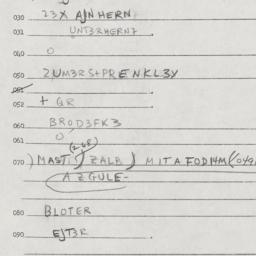 030 23X AJNHERN
031 UNT3RHERN7
040 O
050 2UM3RS+PRENKL3Y
051
052 + QR
060 BROD3FK3
061 O
070 ) MAST ( ZALB ) MITAFODI4M (049
AZGULE-
080 BLOTER
090 EJT3R